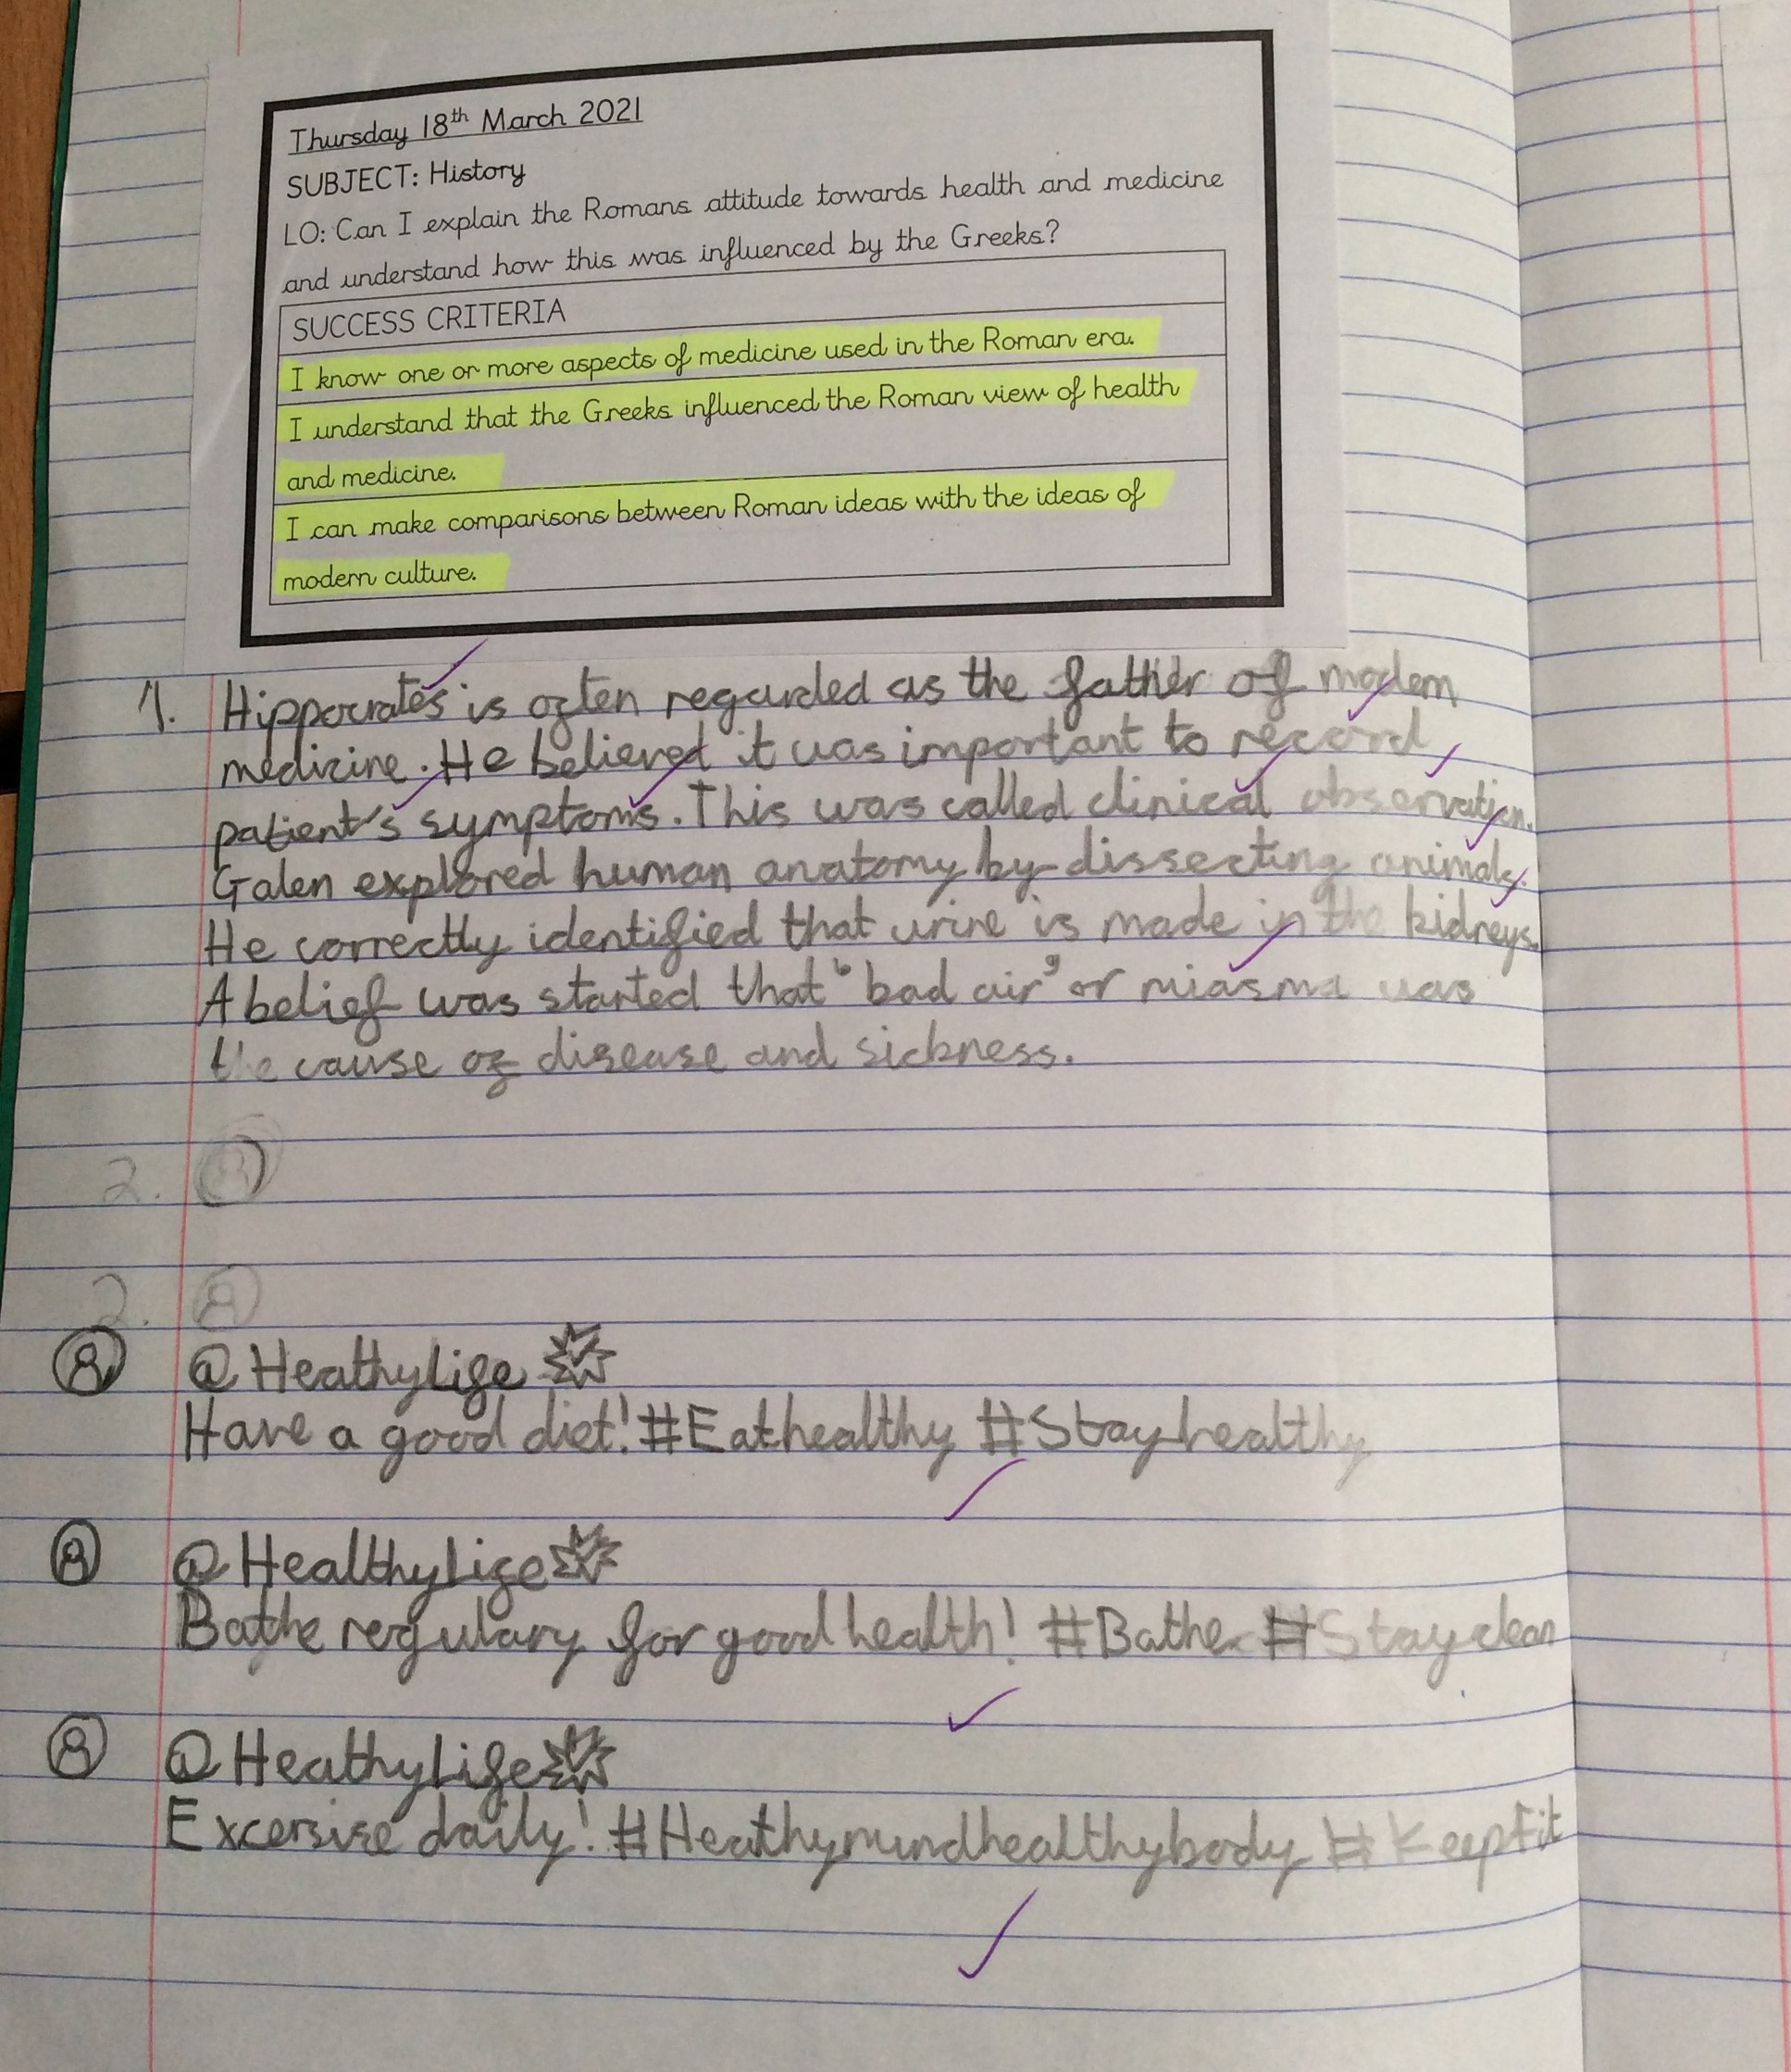 Thursday 18th March 2021
SUBJECT: History
LO: Can I explain the Romans attitude towards health and medicine
and understand how this was influenced by the Greeks?
SUCCESS CRITERIA
I know one or more aspects of medicine used in the Roman era.
I understand that the Greeks influenced the Roman view of health
and medicine.
I can make comparisons between Roman ideas with the ideas of
modern culture.
1. Hippocrates is often regarded as the father of modern
medicine. He believed it was important to record
patient's symptoms. This was called clinical observation.
Galen explored human anatomy by dissecting animals.
He correctly identified that urine is made in the kidneys.
A belief was started that 'bad air' or miasma was
the cause of disease and sickness.
2.
2.
@HeathyLife
Have a good diet! #Eathealthy #Stayhealthy
@HealthyLife
Bathe regulary for good health! #Bathe #Stayclean
@HeathyLife
Excersise daily! #Heathymindhealthybody #KeepFit